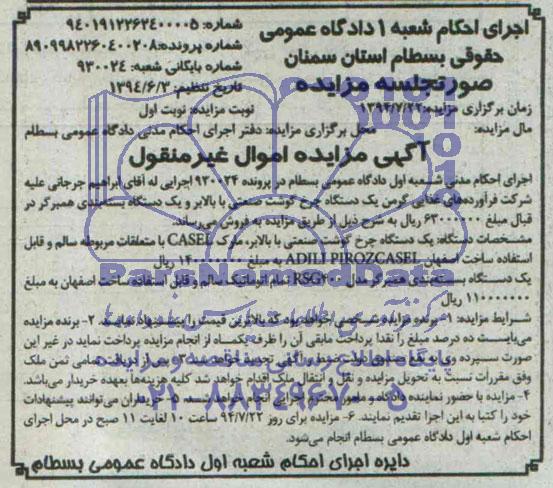 اجرای احکام شعبه ۱ دادگاه عمومی
حقوقی بسطام استان سمنان
صورتجلسه مزایده
شماره: ۹۴۰۱۹۱۲۲۶۲۴۰۰۰۰۵
شماره پرونده: ۸۹۰۹۹۸۲۲۶۰۴۰۰۲۰۸
شماره بایگانی شعبه: ۹۳۰۰۲۴
تاریخ تنظیم: ۱۳۹۴/۶/۳
زمان برگزاری مزایده: ۱۳۹۴/۷/۲۲ نوبت مزایده: نوبت اول
مال مزایده: محل برگزاری مزایده: دفتر اجرای احکام مدنی دادگاه عمومی بسطام
آگهی مزایده اموال غیرمنقول
اجرای احکام مدنی شعبه اول دادگاه عمومی بسطام در پرونده ۹۳۰۰۲۴ اجرایی له آقای ابراهیم جرجانی علیه
شرکت فرآورده‌های غذایی گرمن یک دستگاه چرخ گوشت صنعتی با بالابر و یک دستگاه بسته‌بندی همبرگر در
قبال مبلغ ۶۳۰۰۰۰۰۰ ریال به شرح ذیل از طریق مزایده به فروش می‌رساند.
مشخصات دستگاه: یک دستگاه چرخ گوشت صنعتی با بالابر، مارک CASEL با متعلقات مربوطه سالم و قابل
استفاده ساخت اصفهان ADILI PIROZCASEL به مبلغ ریال
یک دستگاه بسته‌بندی همبرگر مدل RSG۴۰۰ تمام اتوماتیک سالم و قابل استفاده ساخت اصفهان به مبلغ
۱۱۰۰۰۰۰۰۰ ریال
شرایط مزایده: ۱- برنده مزایده شخصی خواهد بود که بالاترین قیمت را پیشنهاد نمایند. ۲- برنده مزایده
می‌بایست ده درصد مبلغ را نقدا پرداخت مابقی آن را ظرف یکماه از انجام مزایده پرداخت نماید در غیر این
صورت سپرده وی به نفع صندوق دولت ضبط و آگهی تجدید خواهد شد. ۳- پس از دریافت تمامی ثمن ملک
وفق مقررات نسبت به تحویل مزایده و نقل و انتقال ملک اقدام خواهد شد کلیه هزینه‌ها بعهده خریدار می‌باشد.
۴- مزایده با حضور نماینده دادگاه و مامور محترم اجرایی انجام خواهد شد. ۵- خریداران می‌توانند پیشنهادات
خود را کتبا به این اجرا تقدیم نمایند. ۶- مزایده برای روز ۹۴/۷/۲۲ ساعت ۱۰ لغایت ۱۱ صبح در محل اجرای
احکام شعبه اول دادگاه عمومی بسطام انجام می‌شود.
دایره اجرای احکام شعبه اول دادگاه عمومی بسطام
ParsNamadData